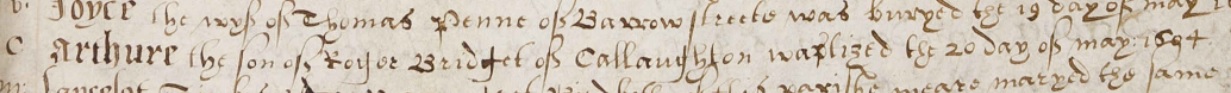 Joyce the wyf of Thomas Penne of Barrow streete was buryed the 19 day of may
C Arthure the son of Roger Bridget of Callaughton waptized the 20 day of may: 1594
parishe weare maryed the same